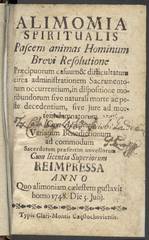 ALIMONIA
SPIRITUALIS
Pascens animas Hominum
Brevi Resolutione
Præcipuorum casuum & difficultatum
circa administrationem Sacramento-
rum occurrentium, in dispositione mo-
ribundorum sive naturali morte ac pe-
ste decedentium, sive jure ad mor-
tem
Variarum Benedictionum
ad commodum
Sacerdotum præsertim
Cum licentia Superiorum
REIMPRESSA
ANNO
Quo alimoniam cælestem gustavit
homo 1748. Die 5. Junij.
Typis Clari-Montis Częstochoviensis.